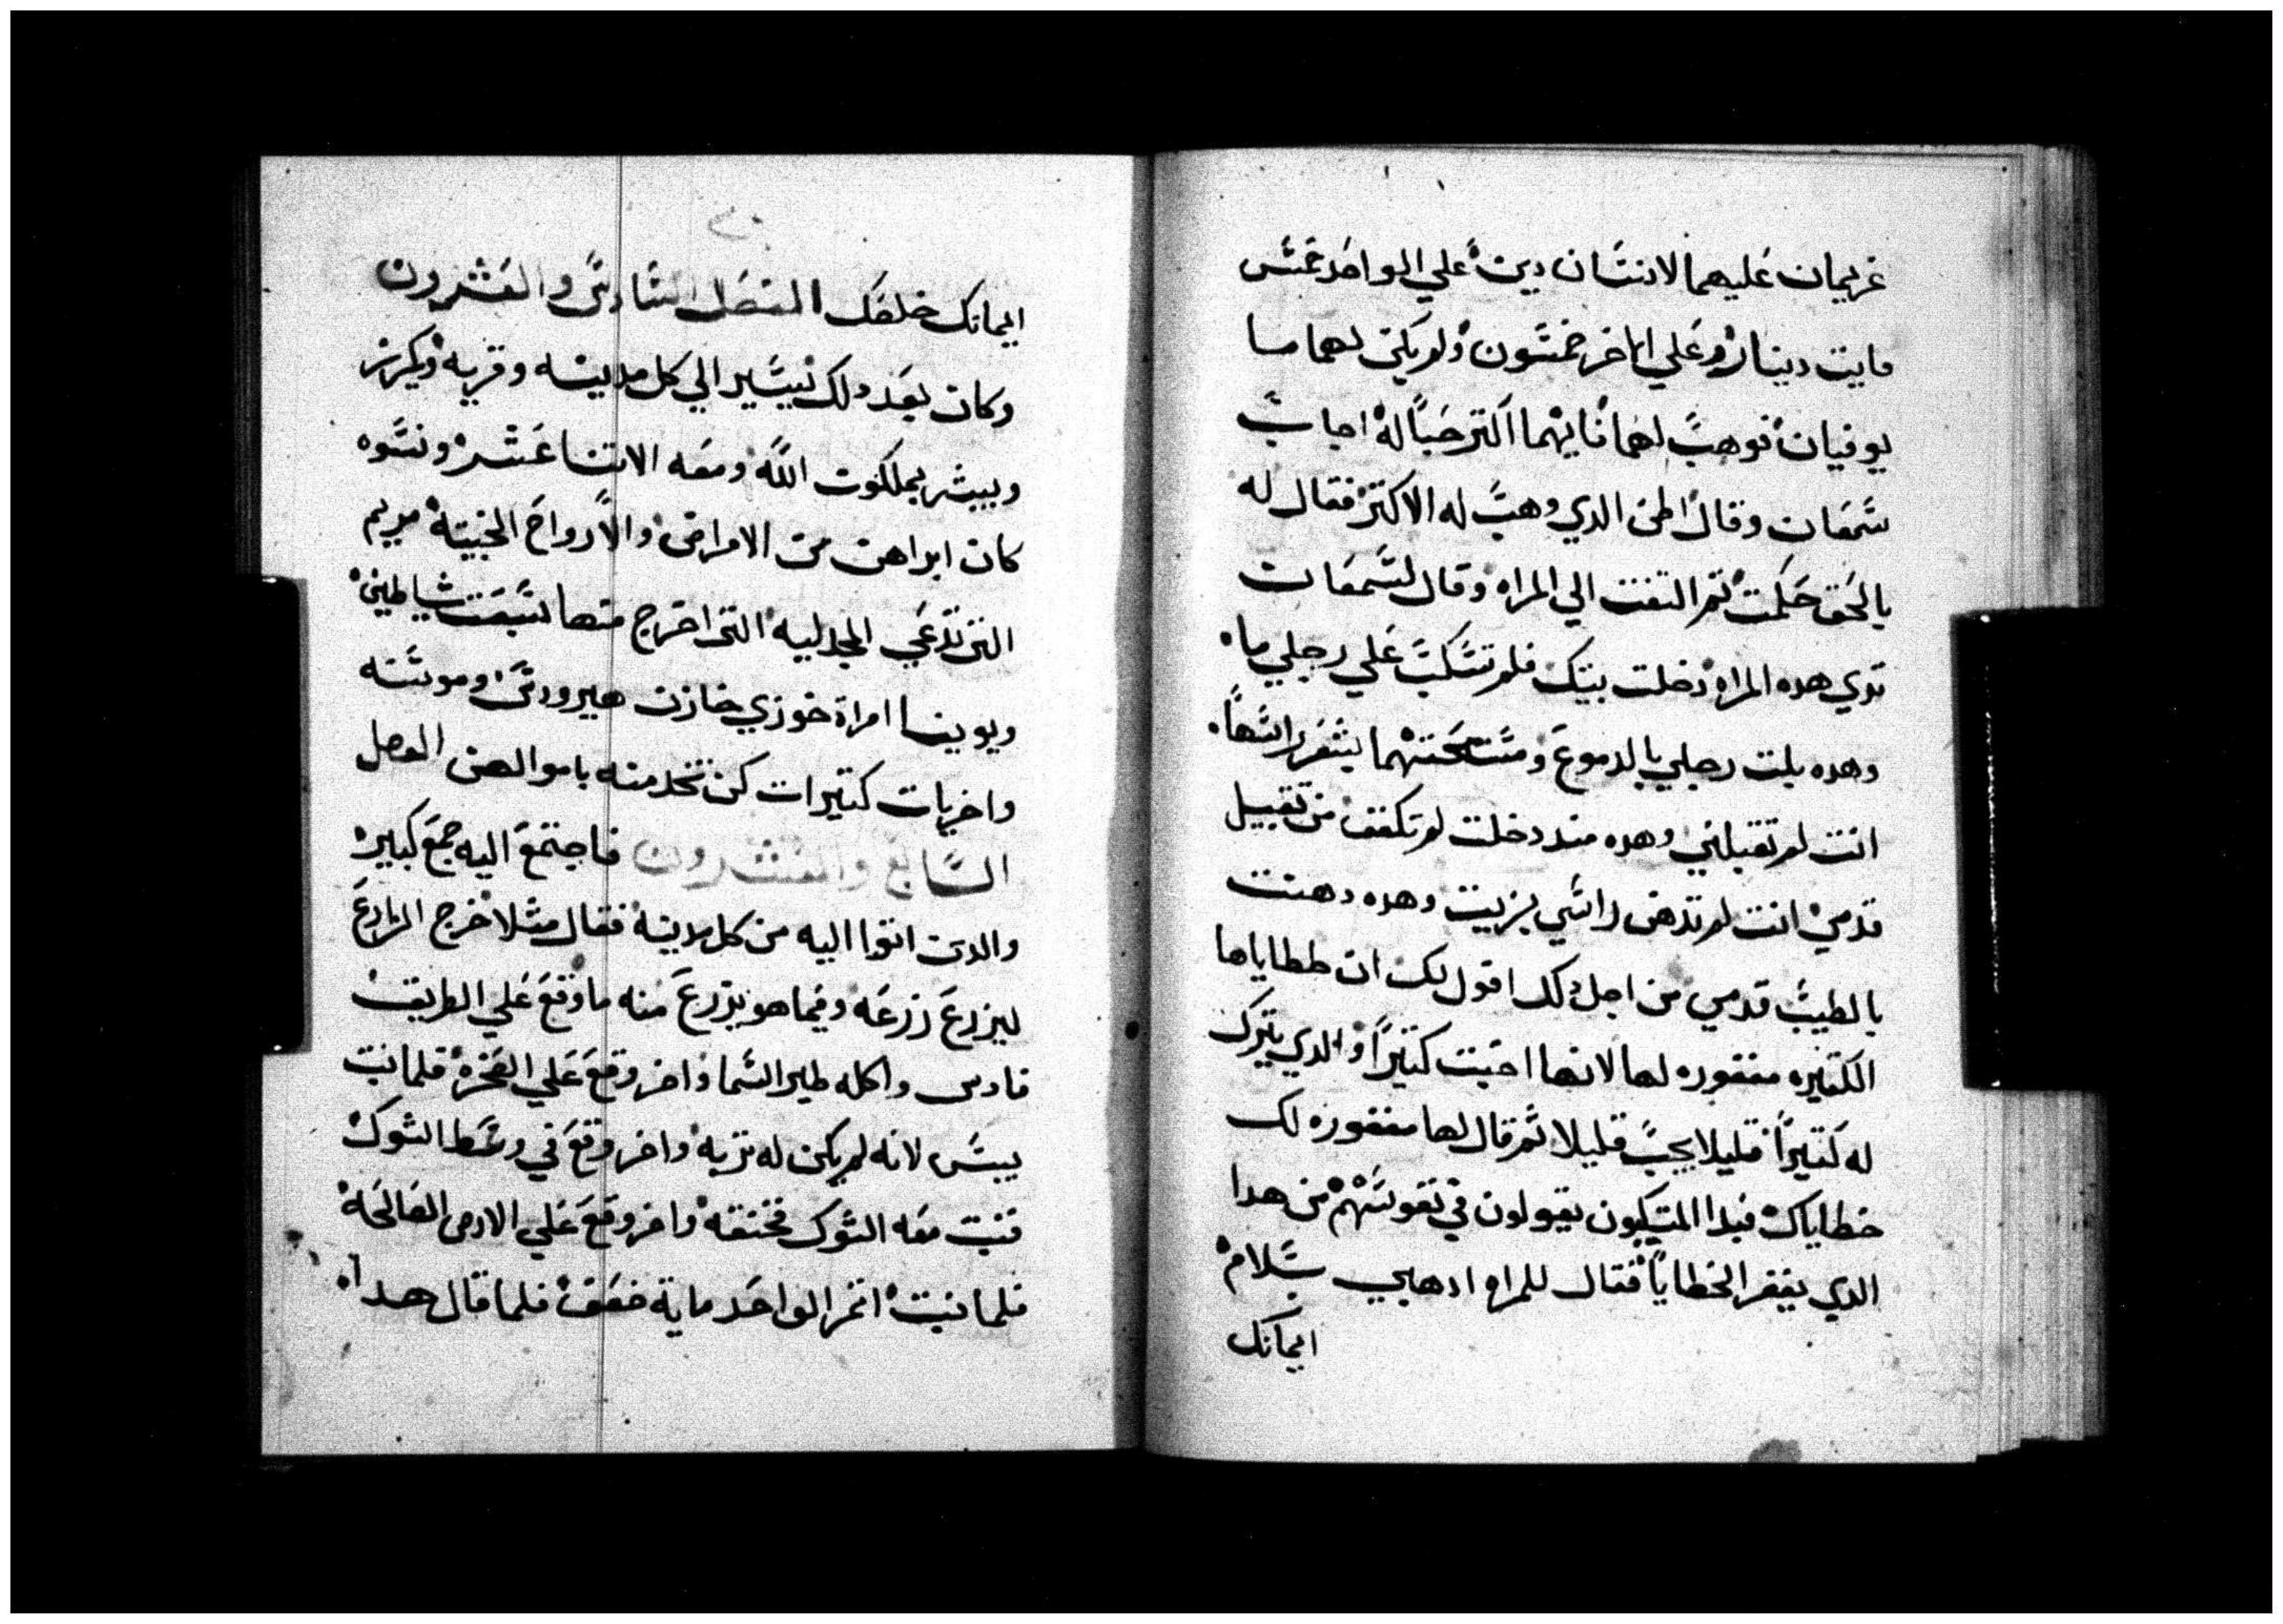 غريمان عليهما لانسان دين علي الواحد خمس
مايت دينار وعلي الاخر خمسون ولم يكن لهما ما
يوفيان فوهب لهما فايهما اكتر حبا له اجاب
سمعان وقال اظن الدي وهب له الاكتر فقال له
بالحق حكمت تم التفت الي المراه وقال لسمعان
تري هده المراه دخلت بيتك فلم تسكب علي رجلي ماء
وهده بلت رجلي بالدموع ومسحتهما بشعر راسها
انت لم تقبلني وهده مند دخلت لم تكفف من تقبيل
قدمي انت لم تدهن راسي بزيت وهده دهنت
بالطيب قدمي من اجل دلك اقول لك ان خطاياها
الكتيره مغفوره لها لانها احبت كتيرا والدي يترك
له كتيرا قليلا يحب قليلا تم قال لها مغفوره لك
خطاياك فبدا المتكيون يقولون في نفوسهم من هدا
الدي يغفر الخطايا فقال للمراه ادهبي بسلام
ايمانك
ايمانك خلصك الفصل السادس والعشرون
وكان بعد دلك يسير الي كل مدينه وقريه ويكرز
ويبشر بملكوت الله ومعه الاتنا عشر ونسوه
كان ابراهن من الامراض والارواح الخبيته مريم
التي تدعي المجدليه التي اخرج منها سبعت شياطين
ويوينا امراة خوزي خازن هيرودس وسوسنه
واخريات كتيرات كن تخدمنه باموالهن الفصل
السابع والعشرون فاجتمع اليه جمع كبير
والدين اتوا اليه من كل مدينه فقال متلا خرج الزارع
ليزرع زرعه وفيما هو يزرع منه ما وقع علي الطريق
فاديس واكله طير السما واخر وقع علي الصخره فلما نبت
يبس لانه لم يكن له تربه واخر وقع في وسط الشوك
فنبت معه الشوك فخنقه واخر وقع علي الارض الصالحه
فلما نبت اتمر الواحد ماية ضعف فلما قال هدا